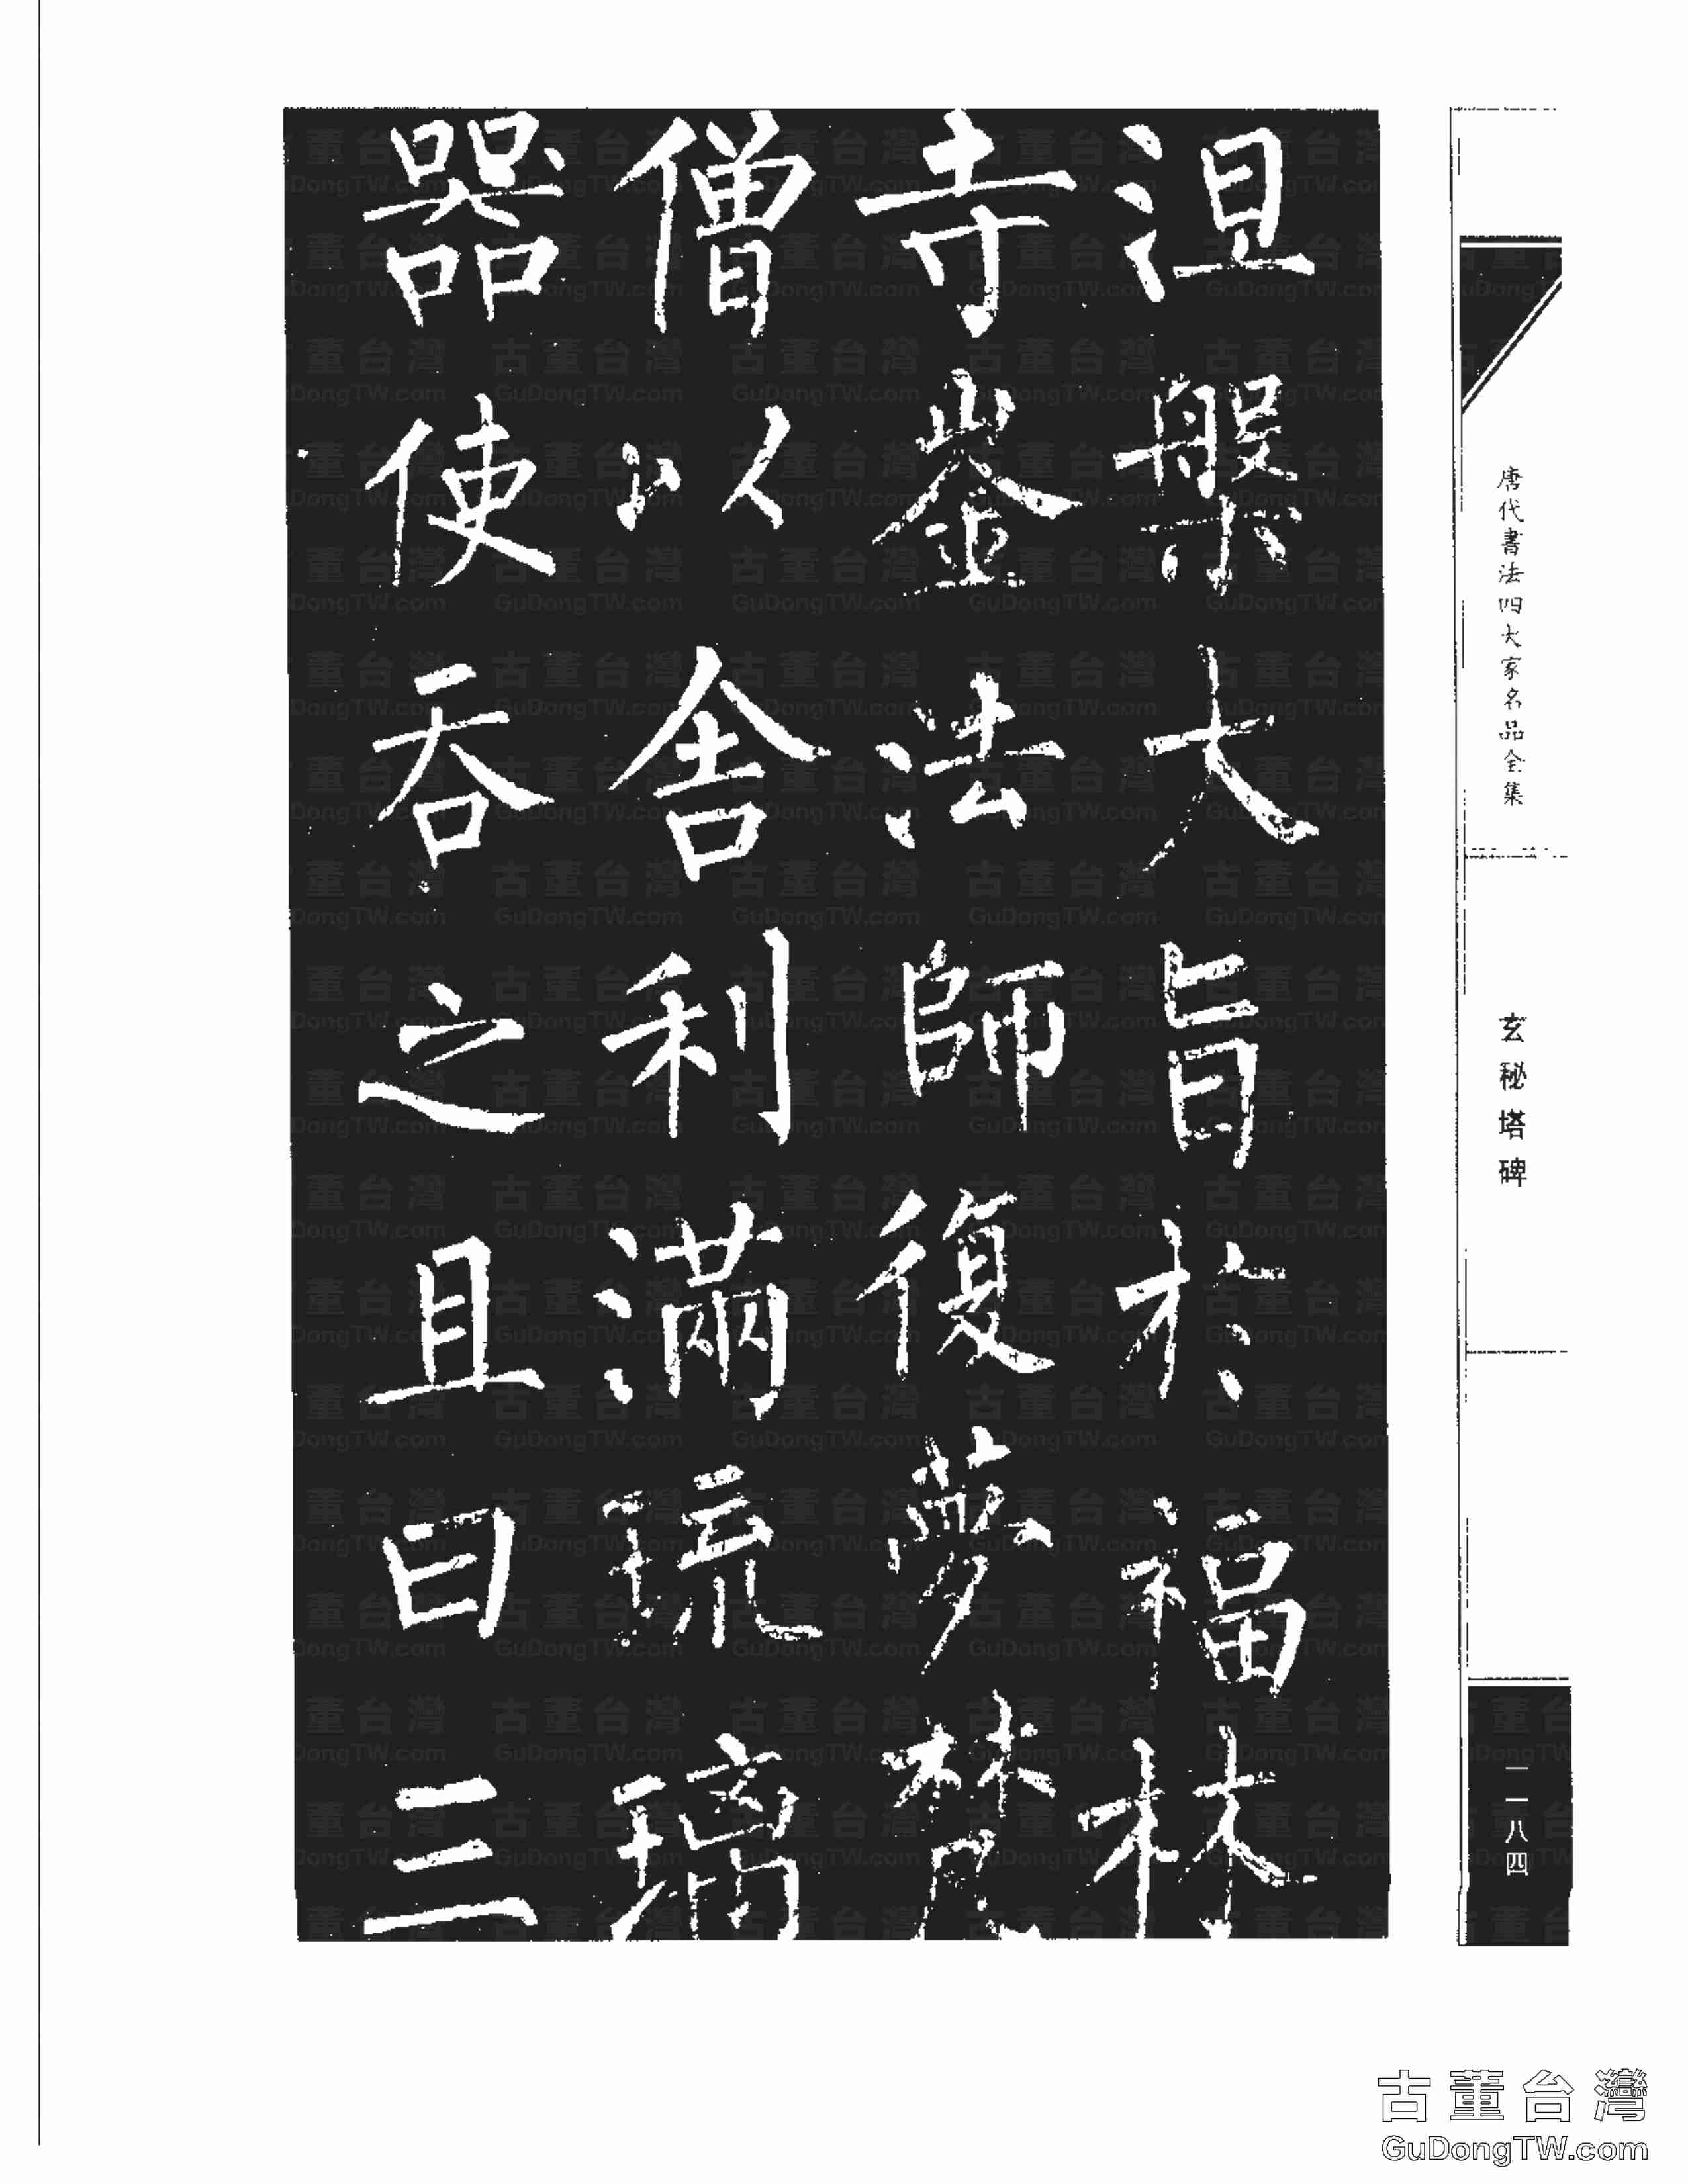 涅槃大旨於福林
寺崟法師復夢梵
僧以舍利滿琉璃
器使吞之且曰三
唐代書法四大家名品全集
玄秘塔碑
一一八四
古董台灣
GuDongTW.com